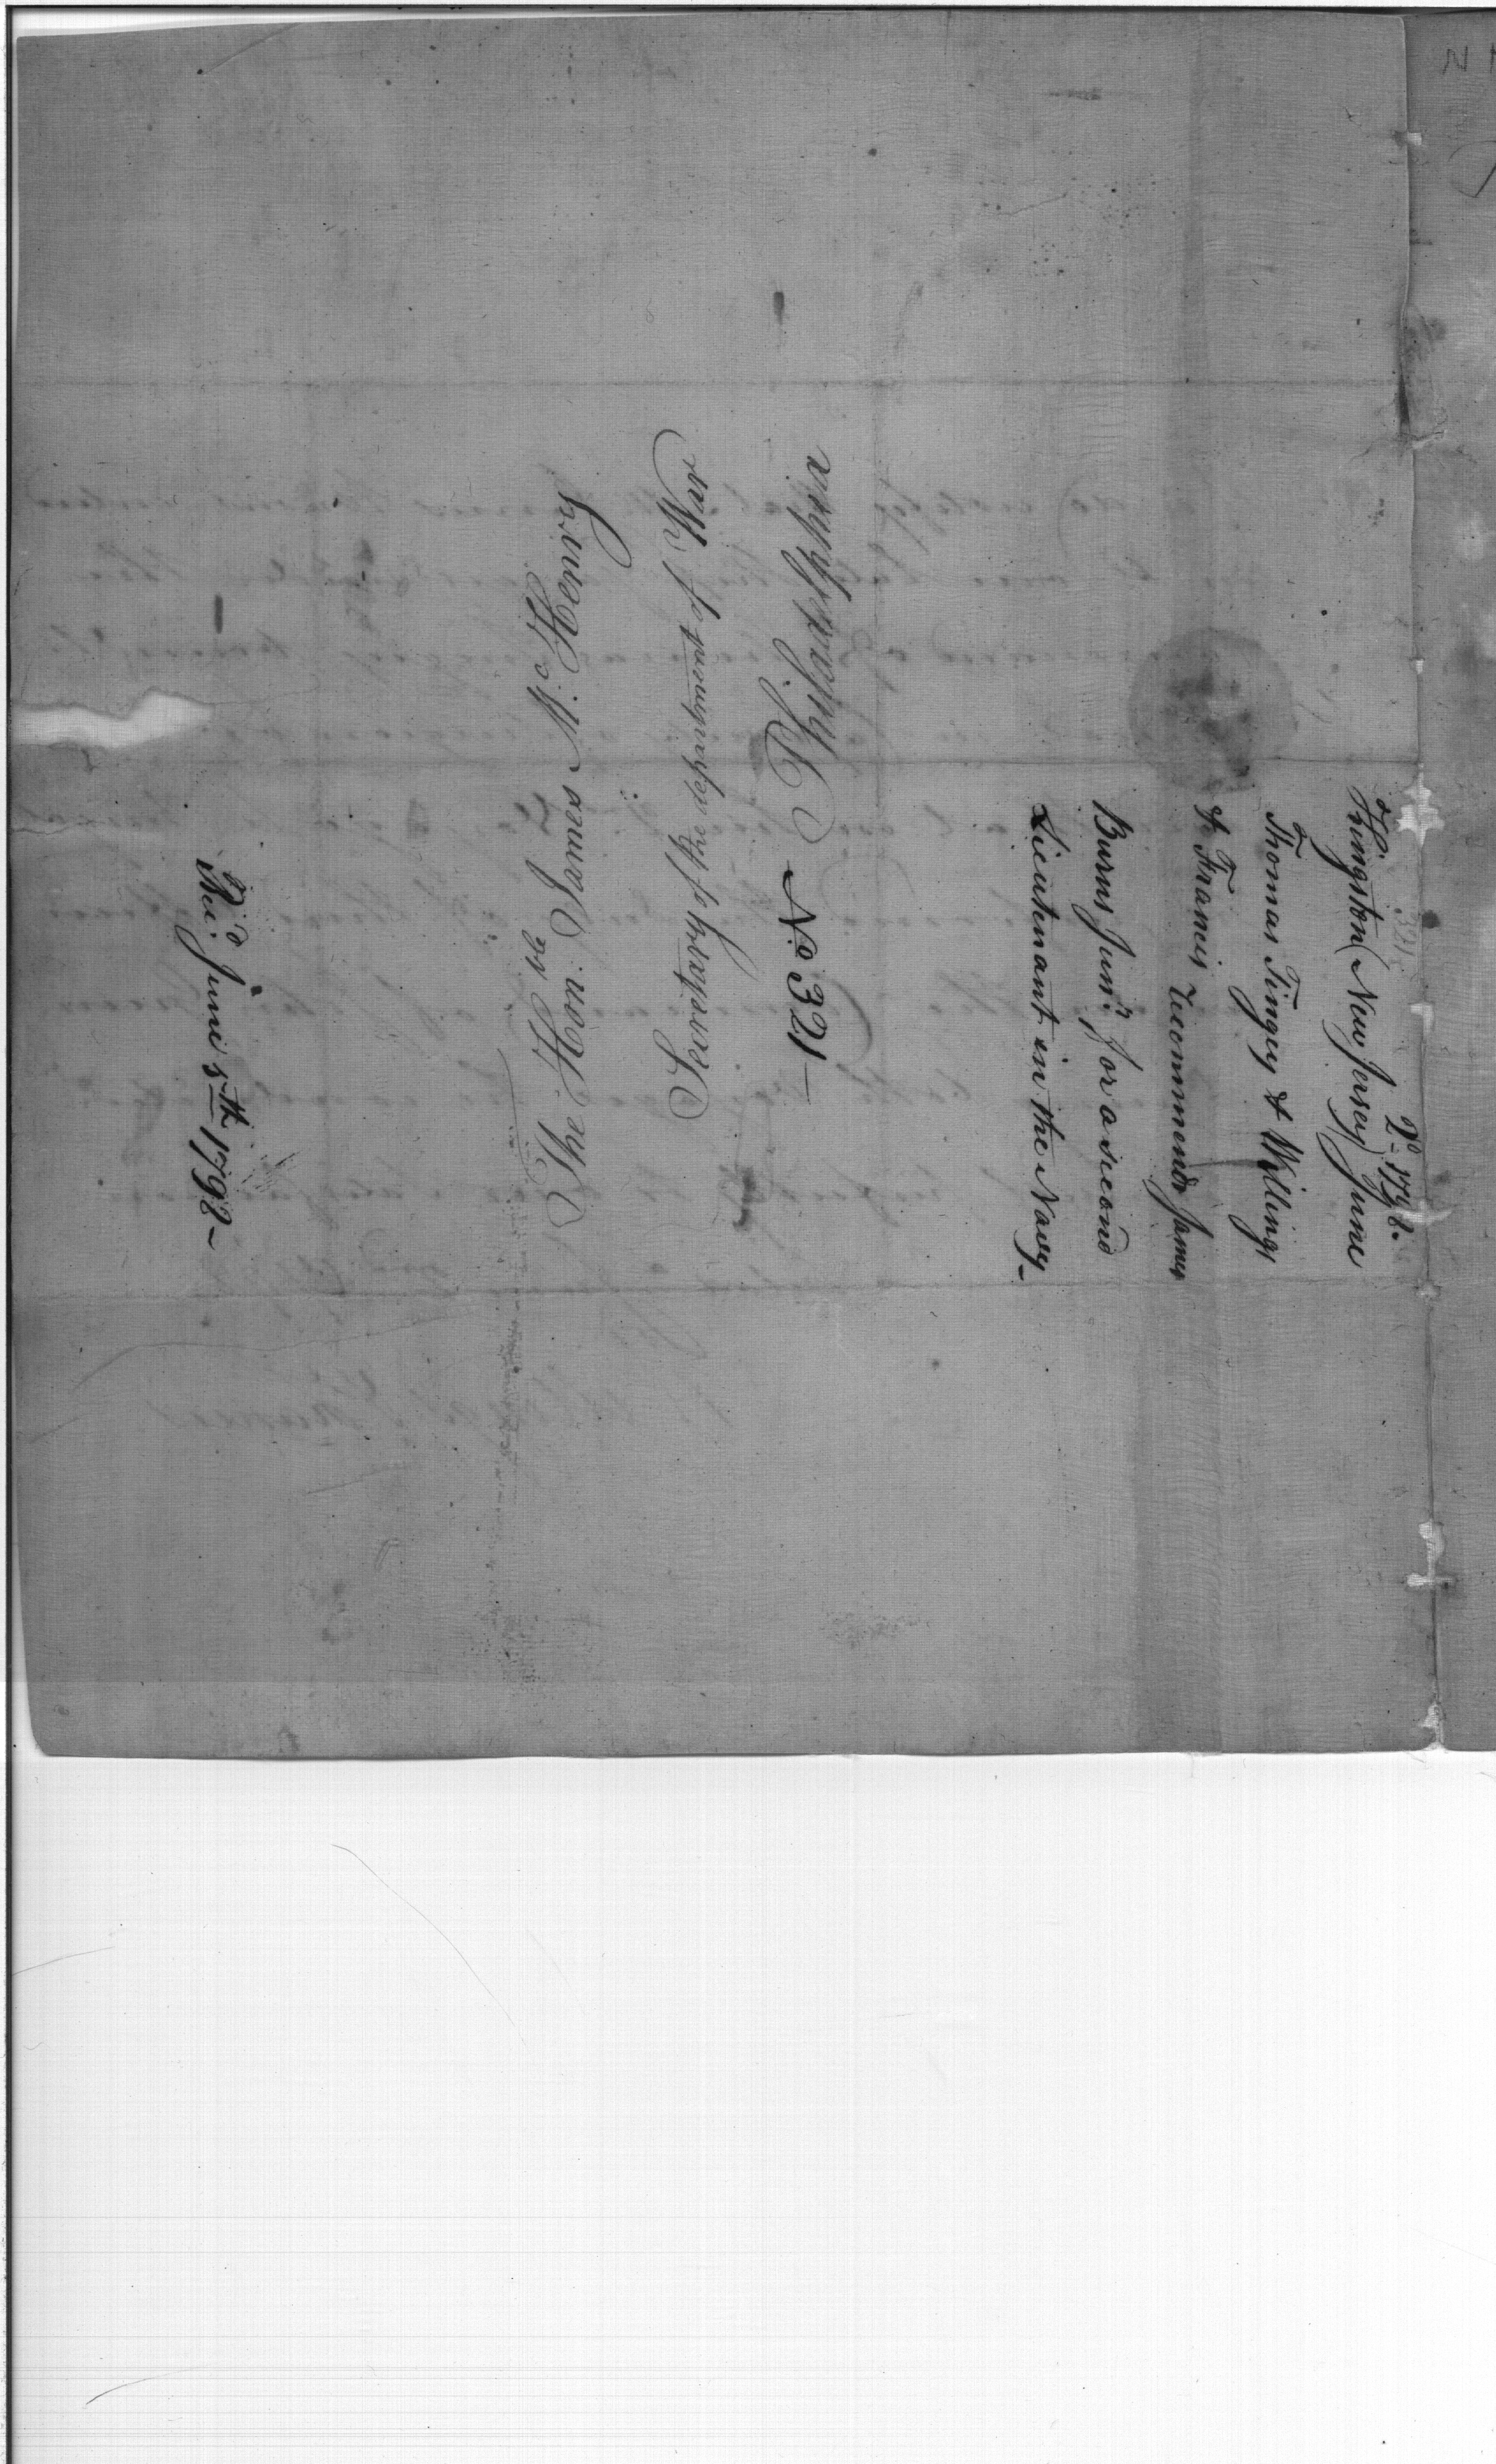 Kingston (New Jersey) June
2d 1798.
Thomas Tingey & Willings
& Francis recommends James
Burns Junr. for a second
Lieutenant in the Navy –
No 321 –
The Honble. James Mc.Henry
Secretary of the department of War
Philadelphia
Recd. June 5th 1798 –